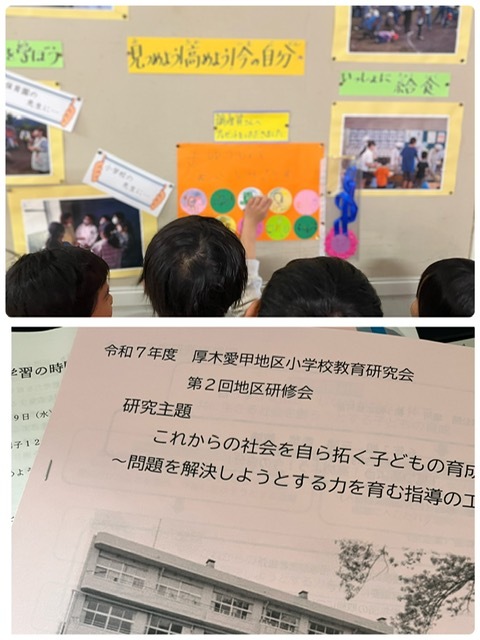 を学ぼう
見つめよう高めよう今の自分
いっしょに給食
保育園の
先生に…
小学校の
先生に…
令和7年度 厚木愛甲地区小学校教育研究会
第2回地区研修会
研究主題
これからの社会を自ら拓く子どもの育成
～問題を解決しようとする力を育む指導の工
学習の時
9日(水